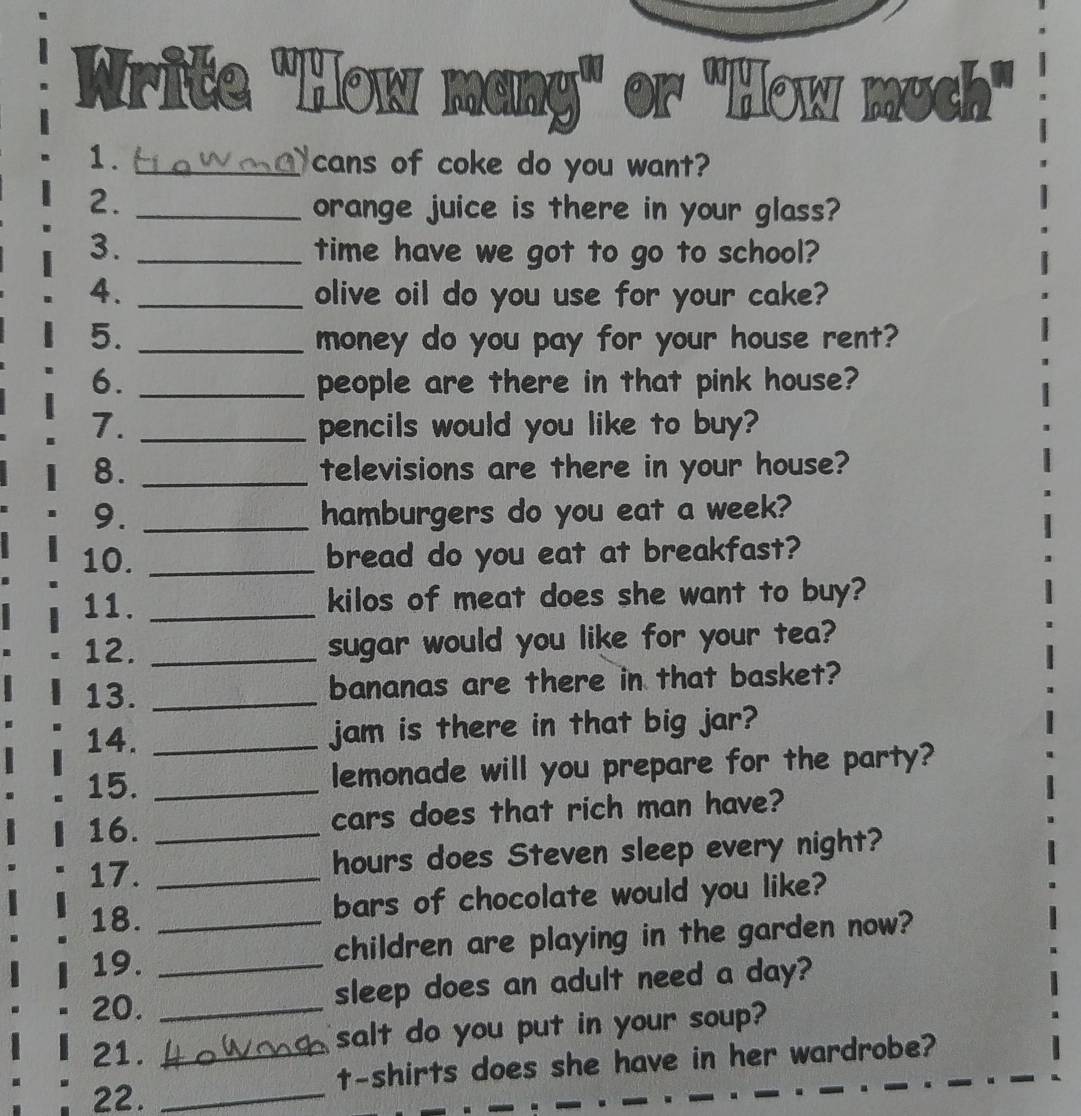 Write "How many" or "How much"
1. How may cans of coke do you want?
2. ________ orange juice is there in your glass?
3. ________ time have we got to go to school?
4. ________ olive oil do you use for your cake?
5. ________ money do you pay for your house rent?
6. ________ people are there in that pink house?
7. ________ pencils would you like to buy?
8. ________ televisions are there in your house?
9. ________ hamburgers do you eat a week?
10. ________ bread do you eat at breakfast?
11. ________ kilos of meat does she want to buy?
12. ________ sugar would you like for your tea?
13. ________ bananas are there in that basket?
14. ________ jam is there in that big jar?
15. ________ lemonade will you prepare for the party?
16. ________ cars does that rich man have?
17. ________ hours does Steven sleep every night?
18. ________ bars of chocolate would you like?
19. ________ children are playing in the garden now?
20. ________ sleep does an adult need a day?
21. How salt do you put in your soup?
22. ________ t-shirts does she have in her wardrobe?